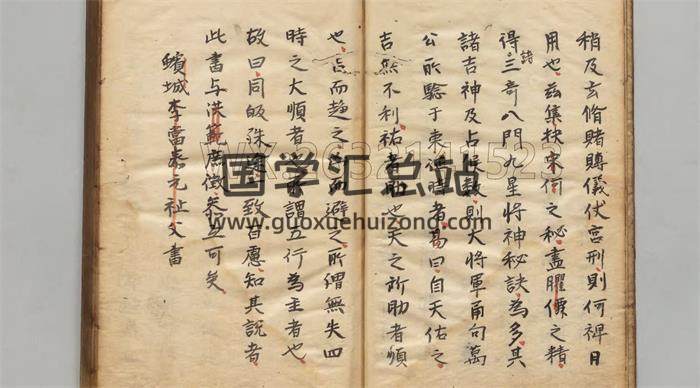 稍及玄脩賭賻儀伏宮刑則何裨日
用也茲集抉宋何之秘盡臞僊之精
得諸三奇八門九星將神秘訣為多其
諸吉神及占數則大將軍甬句萬
公所驗于東時者易曰自天佑之
吉無不利祐者助也天之所助者順
也而趋之而避之所謂無失四
時之大順者所謂五行為主者也
故曰同皈殊致百慮知其說者
此書与洪範庶徵參互可矣
蠙城李當泰元祉父書
国学汇总站
www.guoxuehuizong.com